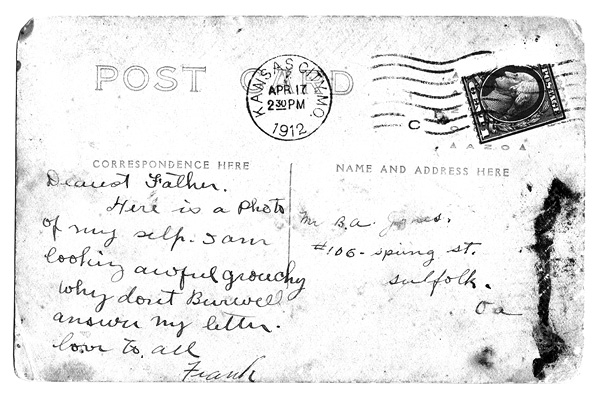 POST CARD
KANSAS CITY, MO.
APR 17
2 30 PM
1912
CORRESPONDENCE HERE
NAME AND ADDRESS HERE
Dearest Father.
Here is a Photo
of my self. I am
looking awful grouchy
why dont Burwell
answer my letter.
love to all
Frank
Mr B.A. Jones.
#106 - spring st.
suffolk.
Va